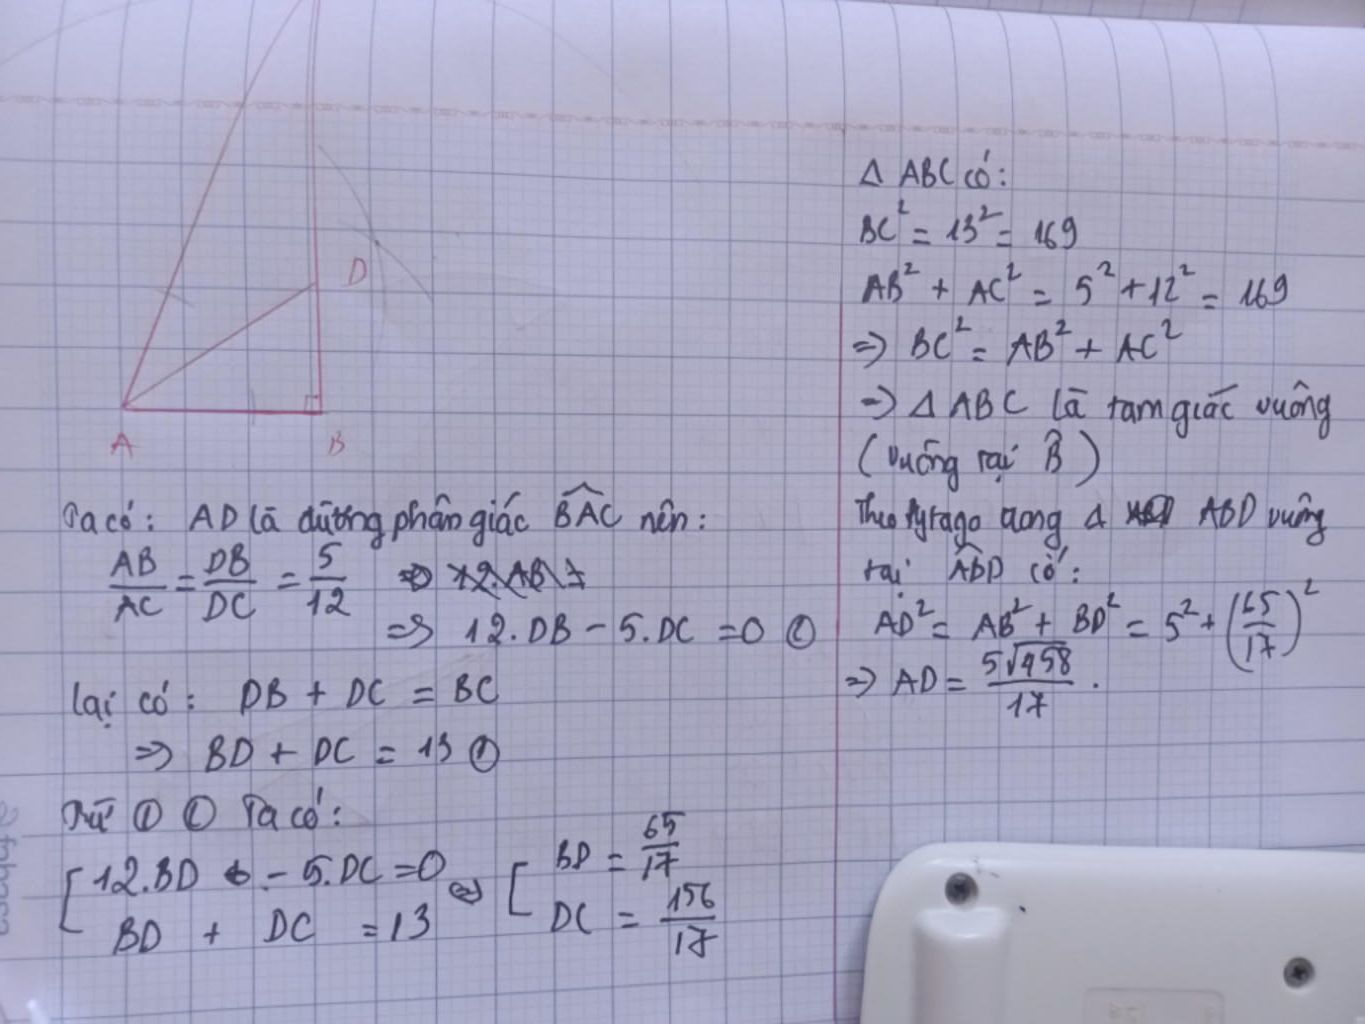 D
A B
Ta có: AD là đường phân giác BAC nên:
AB/AC = DB/DC = 5/12
=> 12.DB - 5.DC = 0 ②
Lại có: DB + DC = BC
=> BD + DC = 13 ①
Từ ① ② Ta có:
[ 12.BD - 5.DC = 0 <=> [ BD = 65/17
BD + DC = 13 DC = 156/17
Δ ABC có:
BC² = 13² = 169
AB² + AC² = 5² + 12² = 169
=> BC² = AB² + AC²
=> Δ ABC là tam giác vuông
(vuông tại B)
Theo Pytago trong Δ ABD vuông
tại ABD có:
AD² = AB² + BD² = 5² + (65/17)²
=> AD = 5√458/17 .